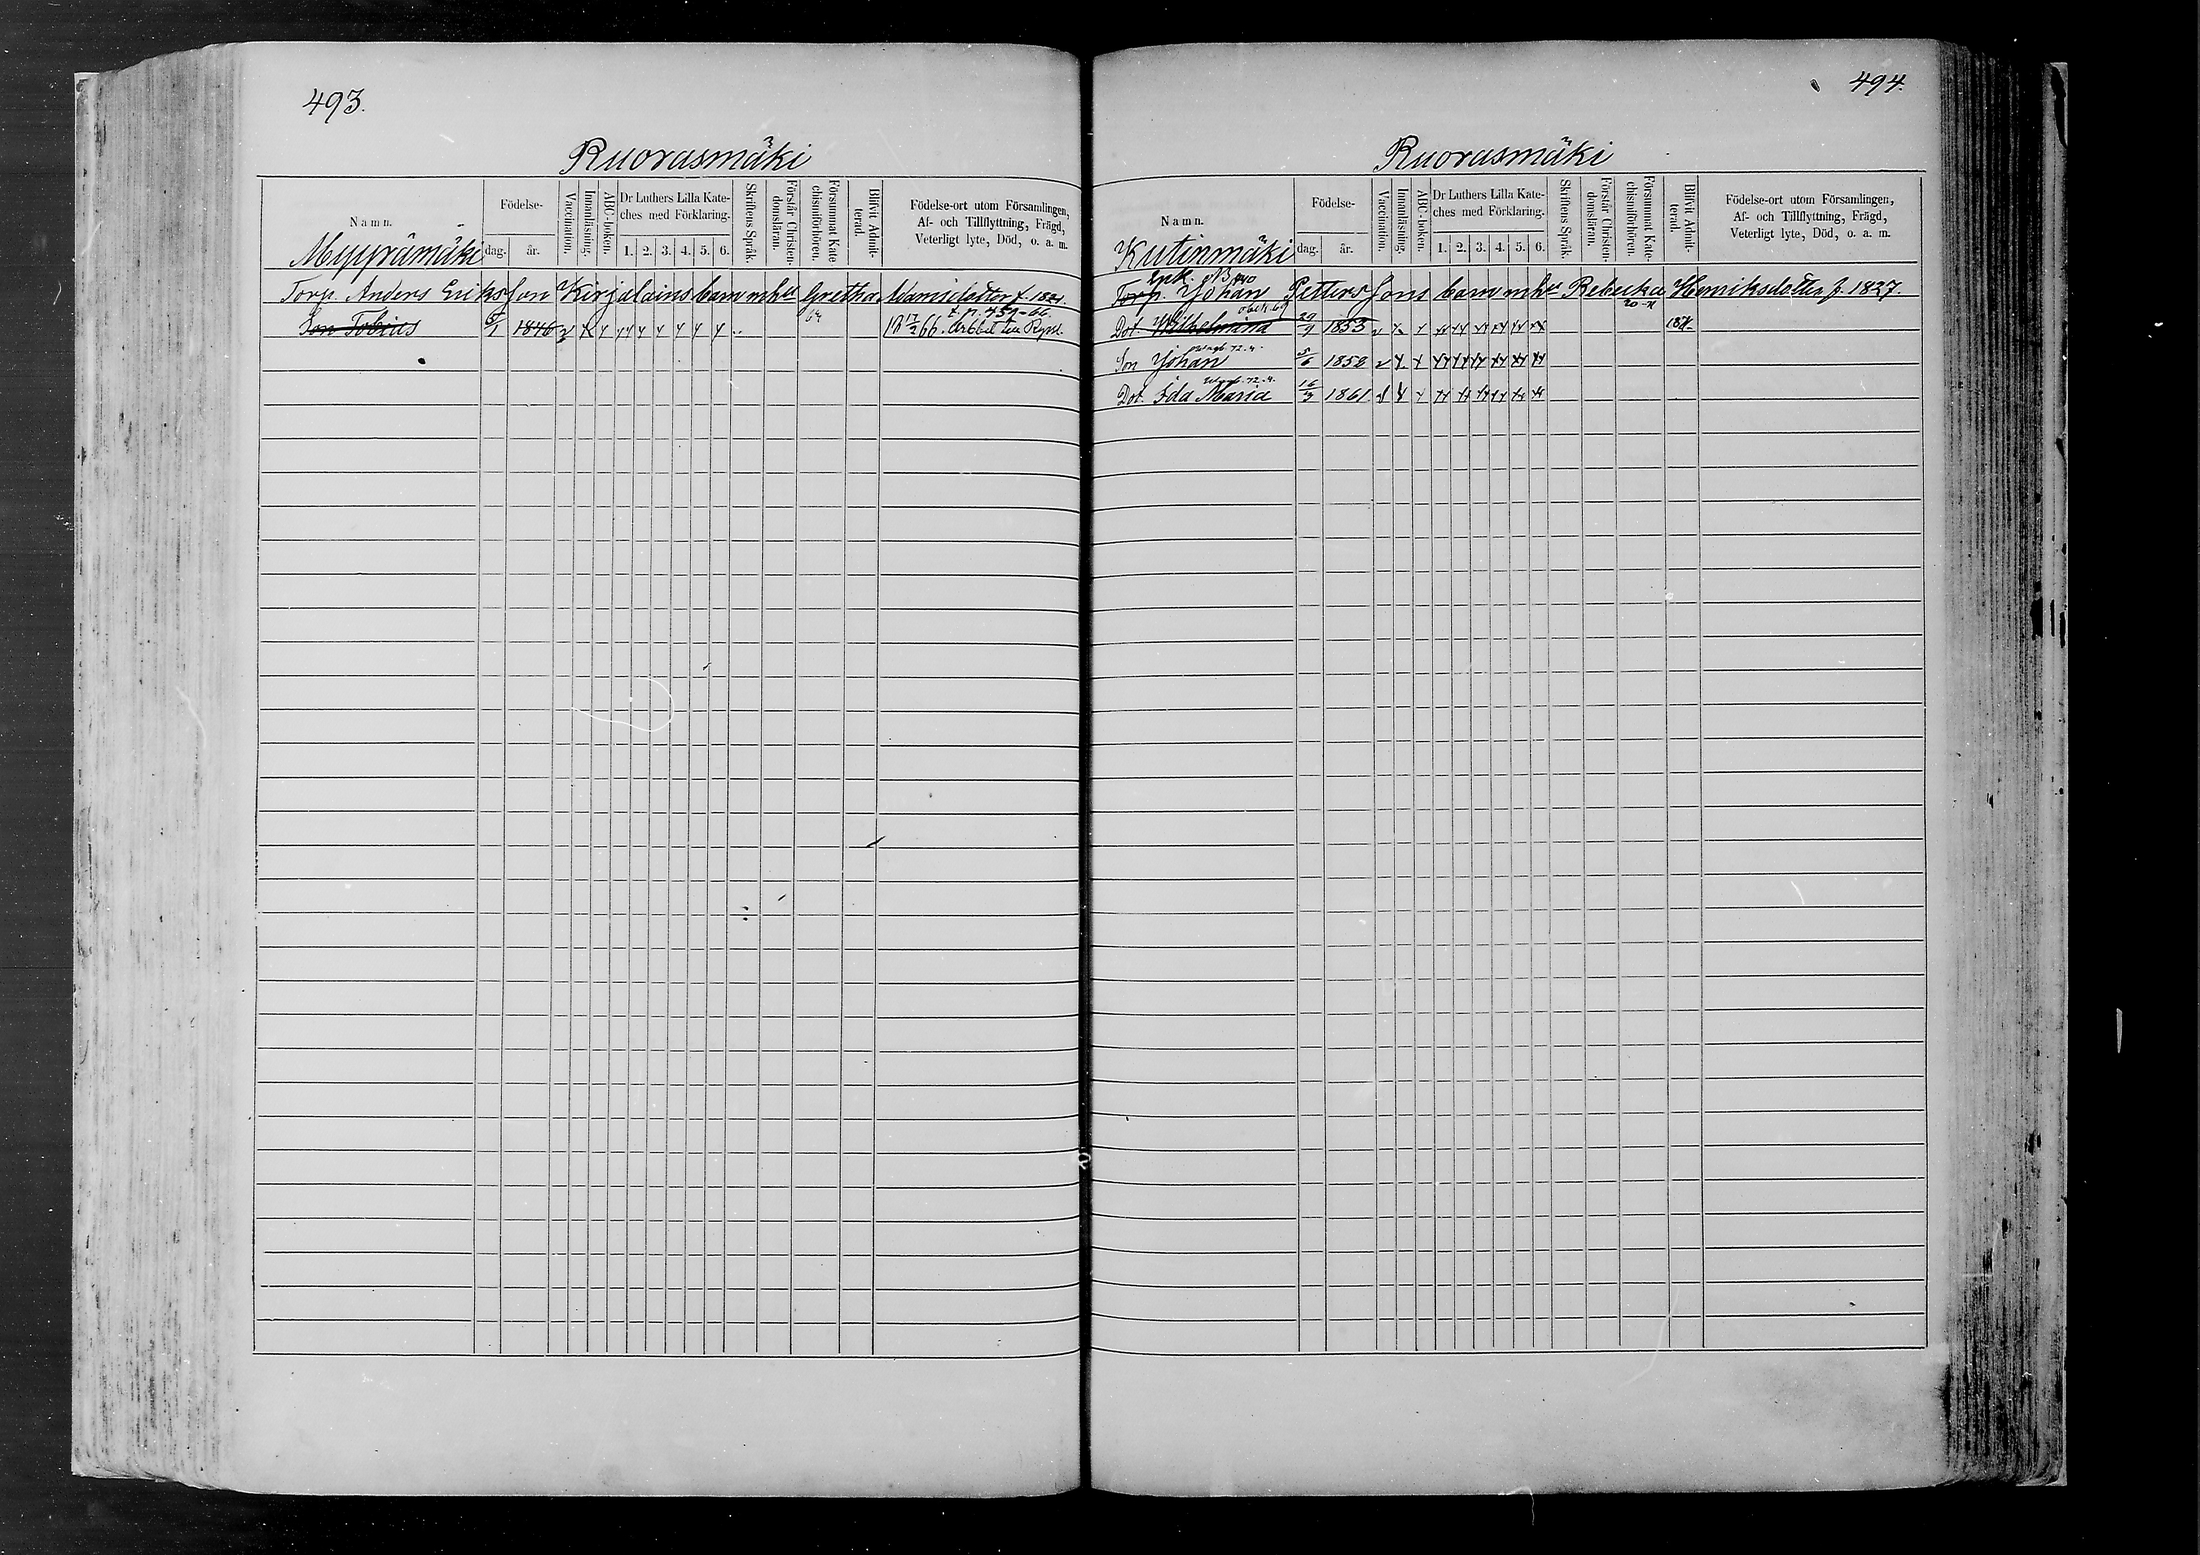 493.
Ruorasmäki
Namn.
Födelse-
dag.
år.
Vaccination.
Innanläsning.
ABC-boken.
Dr Luthers Lilla Kate-
ches med Förklaring.
1. 2. 3. 4. 5. 6.
Skriftens Språk.
Förstår Christen-
domsläran.
Försummat Kate-
chismiförhören.
Blifvit Admit-
terad.
Födelse-ort utom Församlingen,
Af- och Tillflyttning, Frägd,
Veterligt lyte, Död, o. a. m.
Myyrämäki
Torp. Anders Eriksson Kirjalains barn mhu Gretha Adamsdotter f. 1821.
t. p. 459-66.
Son Tobias 5/1 1846
494.
Ruorasmäki
Namn.
Födelse-
dag.
år.
Vaccination.
Innanläsning.
ABC-boken.
Dr Luthers Lilla Kate-
ches med Förklaring.
1. 2. 3. 4. 5. 6.
Skriftens Språk.
Förstår Christen-
domsläran.
Försummat Kate-
chismiförhören.
Blifvit Admit-
terad.
Födelse-ort utom Församlingen,
Af- och Tillflyttning, Frägd,
Veterligt lyte, Död, o. a. m.
Kutinmäki
Torp. Johan Petterssons barn mhu Rebecka Henriksdotter f. 1827.
Dot. Wilhelmina 29/9 1853
Son Johan 5/6 1858
Dot. Ida Maria 16/3 1861